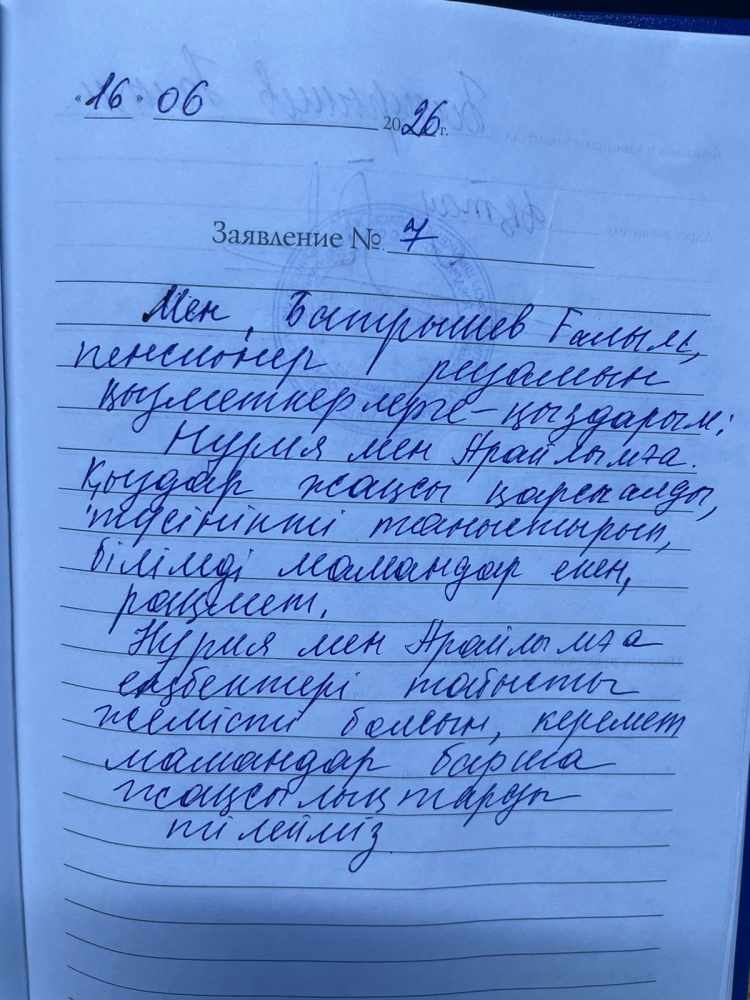 «16» 06 2026 г.
Заявление № 7
Мен, Батрышев Ғалым,
пенсионер ризамын
қызметкерлерге-қыздарым:
Нурия мен Арайлымға.
Қыздар жақсы қарсы алды,
түсінікті таныстырып,
білімді мамандар екен,
рақмет.
Нурия мен Арайлымға
еңбектері табысты
жемісті болсын, керемет
мамандар барша
жақсылықтарды
тілейміз.